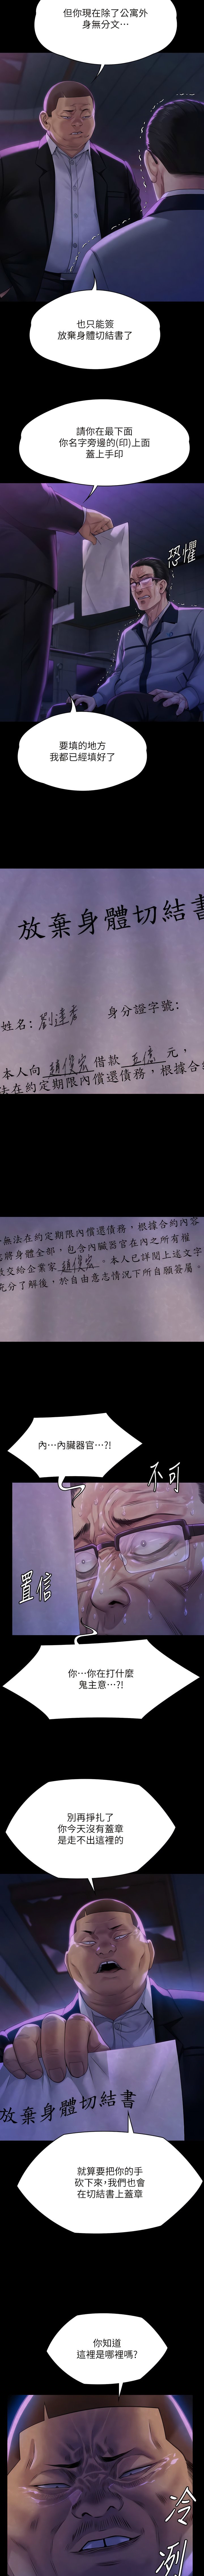 但你現在除了公寓外
身無分文…
也只能簽
放棄身體切結書了
請你在最下面
你名字旁邊的(印)上面
蓋上手印
恐懼
要填的地方
我都已經填好了
放棄身體切結書
姓名:
身分證字號:
本人向 趙俊宏 借款 五億 元,
法在約定期限內償還債務,根據合約
無法在約定期限內償還債務,根據合約內容
將身體全部,包含內臟器官在內之所有權
交給企業家 趙俊宏。本人已詳閱上述文字
充分了解後,於自由意志情況下所自願簽屬。
內…內臟器官…?!
不可
置信
你…你在打什麼
鬼主意…?!
別再掙扎了
你今天沒有蓋章
是走不出這裡的
放棄身體切結書
就算要把你的手
砍下來,我們也會
在切結書上蓋章
你知道
這裡是哪裡嗎?
冷冽